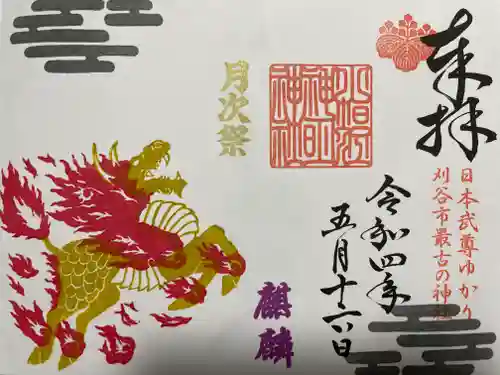 奉拝
日本武尊ゆかり
刈谷市最古の神社
小垣江
神明
神社
月次祭
令和四年
五月十六日
麒麟